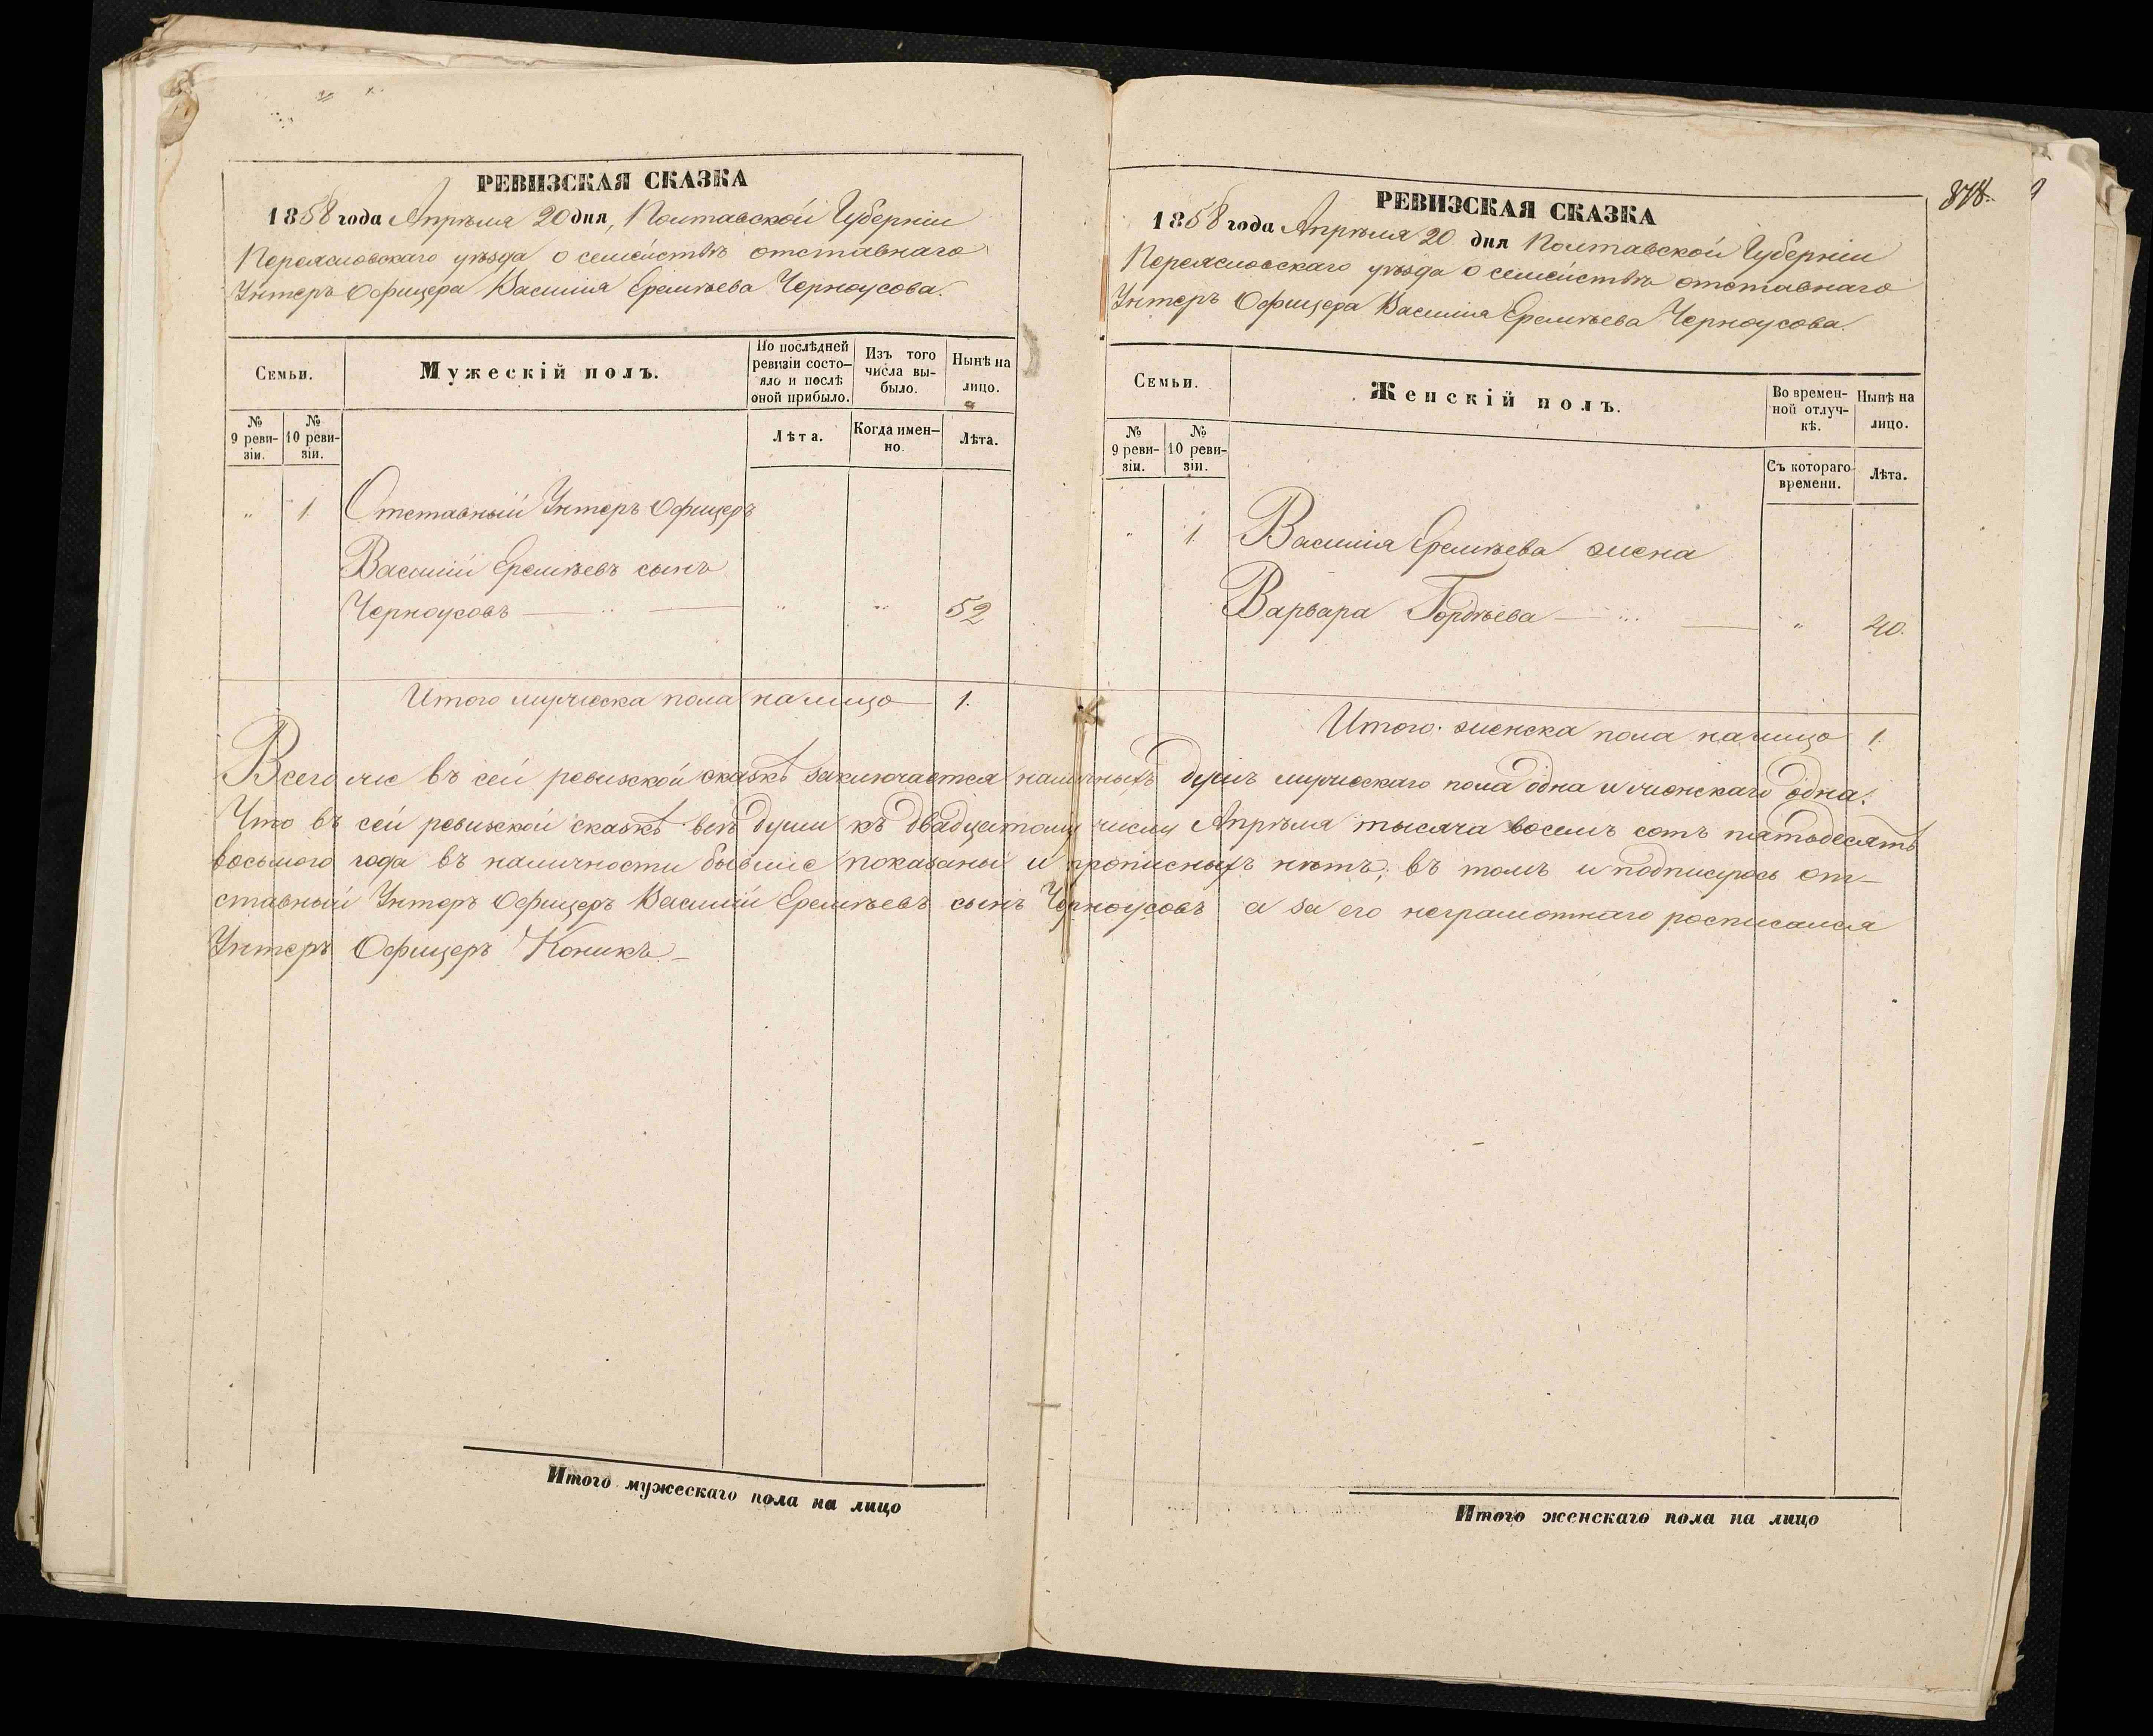 РЕВИЗСКАЯ СКАЗКА
1858 года Апрѣля 20 дня, Полтавской Губерніи
Переясловскаго уѣзда о семействѣ отставнаго
Унтеръ Офицера Василія Еремѣева Черноусова.
Семьи.
Мужескій полъ.
По послѣдней ревизіи состояло и послѣ оной прибыло.
Изъ того числа выбыло.
Нынѣ на лицо.
№ 9 ревизіи.
№ 10 ревизіи.
Лѣта.
Когда именно.
Лѣта.
" 1. Отставный Унтеръ Офицеръ
Василій Еремѣевъ сынъ
Черноусовъ — " — " " 52
Итого мужеска пола на лицо 1.
РЕВИЗСКАЯ СКАЗКА
1858 года Апрѣля 20 дня Полтавской Губерніи
Переясловскаго уѣзда о семействѣ отставнаго
Унтеръ Офицера Василія Еремѣева Черноусова.
878.
Семьи.
Женскій полъ.
Во временной отлучкѣ.
Нынѣ на лицо.
№ 9 ревизіи.
№ 10 ревизіи.
Съ котораго времени.
Лѣта.
" 1. Василія Еремѣева жена
Варвара Гордѣева — " — " 40.
Итого женска пола на лицо 1.
Всего же въ сей ревизской сказкѣ заключается наличныхъ душъ мужескаго пола одна и женскаго одна.
Что въ сей ревизской сказкѣ всѣ души къ двадцатому числу Апрѣля тысяча восемъ сотъ пятьдесятъ
восьмого года въ наличности бывшіе показаны и прописныхъ нѣтъ; въ томъ и подписуюсь от-
ставный Унтеръ Офицеръ Василій Еремѣевъ сынъ Черноусовъ а за его неграмотнаго росписался
Унтеръ Офицеръ Коникъ.
Итого мужескаго пола на лицо
Итого женскаго пола на лицо